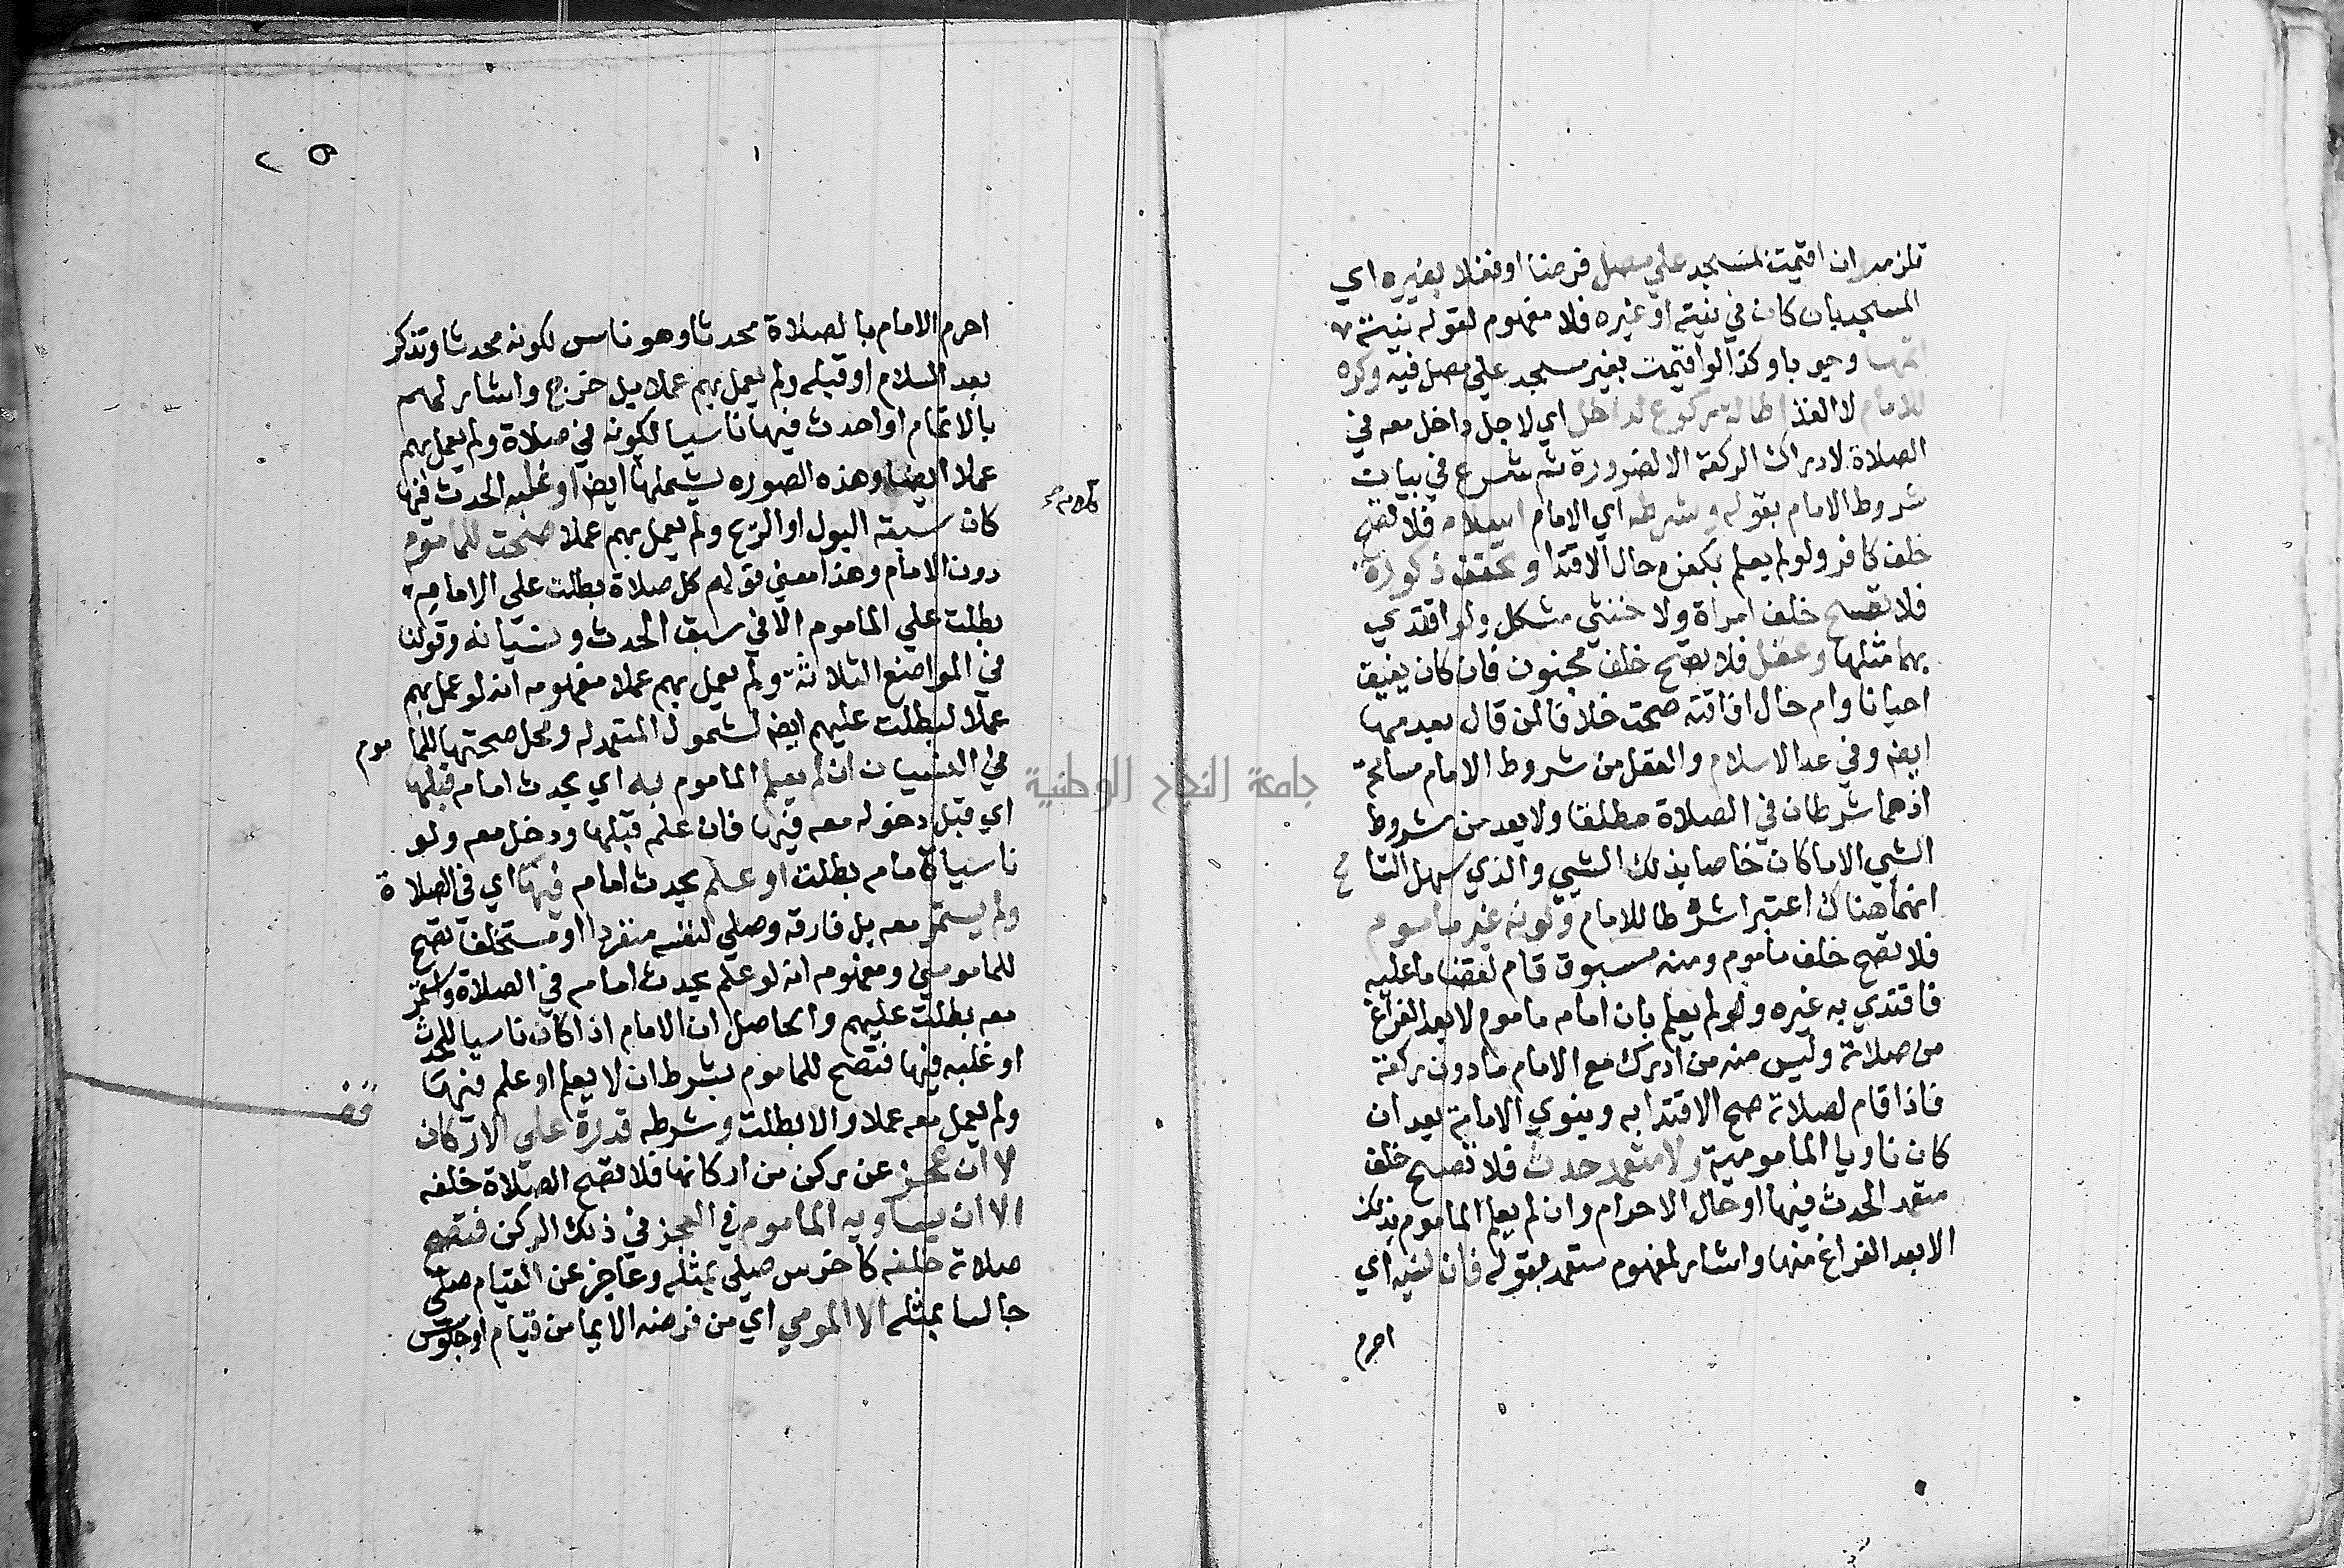 تلزمه وان اقيمت بمسجد علي محصل فرضنا او نفلا بغيره اي
المسجد بان كان في بيته او غيره فلا مفهوم لقوله ببيته
اتمها وجوبا وكذا لو اقيمت بغير مسجد علي مصل فيه وكره
للامام لا الفذ اطالة ركوع لداخل اي لاجل داخل معه في
الصلاة لادراك الركعة الا لضرورة ثم شرع في بيان
شروط الامام بقوله وشرطه اي الامام اسلام فلا تصح
خلف كافر ولو لم يعلم بكفره حال الاقتدا وتحقق ذكورة
فلا تصح خلف امراة ولا خنثي مشكل ولو اقتدي
بهما مثلهما وعقل فلا تصح خلف مجنون فان كان يفيق
احيانا وام حال افاقته صحت خلافا لمن قال بعدمها
ايضه وفي عد الاسلام والعقل من شروط الامام مسامحة
اذ هما شرطان في الصلاة مطلقا ولا يعد من شروط
الشي الا ما كان خاصا بذلك الشيي والذي سهل التسامح
انهما هناك اعتبرا شرطا للامام وكونه غير ماموم
فلا تصح خلف ماموم ومنه مسبوق قام لقضا ما عليه
فاقتدي به غيره ولو لم يعلم بان امامه ماموم لا بعد الفراغ
من صلاته وليس منه من ادرك مع الامام ما دون ركعة
فاذا قام لصلاته صح الاقتدا به وينوي الامامة بعد ان
كان ناويا المامومية ولا متعمد حدث فلا تصح خلف
متعمد الحدث فيها او حال الاحرام وان لم يعلم الماموم بذلك
الا بعد الفراغ منها واشار لمفهوم متعمد بقوله فان نسيه اي
احرم
٢٥
احرم الامام بالصلاة محدثا وهو ناس لكونه محدثا وتذكر
بعد السلام او قبله ولم يعمل بهم عملا بل خرج واشار لهم
بالاتمام او احدث فيها ناسيا لكونه في صلاة ولم يعمل بهم
عملا ايضا وهذه الصوره يشملها ايض او غلبه الحدث فيها
كلامه
كان سبقه البول او الريح ولم يعمل بهم عملا صحت للماموم
دون الامام وهذا معني قولهم كل صلاة بطلت علي الامام
بطلت علي الماموم الا في سبق الحدث ونسيانه وقولنا
في المواضع الثلاثة ولم يعمل بهم عملا مفهومه انه لو عمل بهم
عملا لبطلت عليهم ايضه لشمول المتعمد له ومحل صحتها للماموم
في النسيان ان لم يعلم الماموم به اي بحدث امامه قبلها
اي قبل دخوله معه فيها فان علم قبلها ودخل معه ولو
ناسيا كامامه بطلت او علم بحدث امامه فيها اي في الصلاة
ولم يستمر معه بل فارقه وصلي لنفسه منفردا او مستخلفا تصح
للمامومين ومفهومه انه لو علم بحدث امامه في الصلاة واستمر
معه بطلت عليهم والحاصل ان الامام اذا كان ناسيا للحدث
او غلبه فيها فتصح للماموم بشرط ان لا يعلم او علم فيها
قف
ولم يعمل معه عملا والا بطلت وشرطه قدرة علي الاركان
لا ان عجز عن ركن من اركانها فلا تصح الصلاة خلفه
الا ان يساويه الماموم في العجز في ذلك الركن فتصح
صلاته خلفه كاخرس صلي بمثله وعاجز عن القيام صلي
جالسا بمثله الا المومي اي من فرضه الايما من قيام او جلوس
جامعة النجاح الوطنية